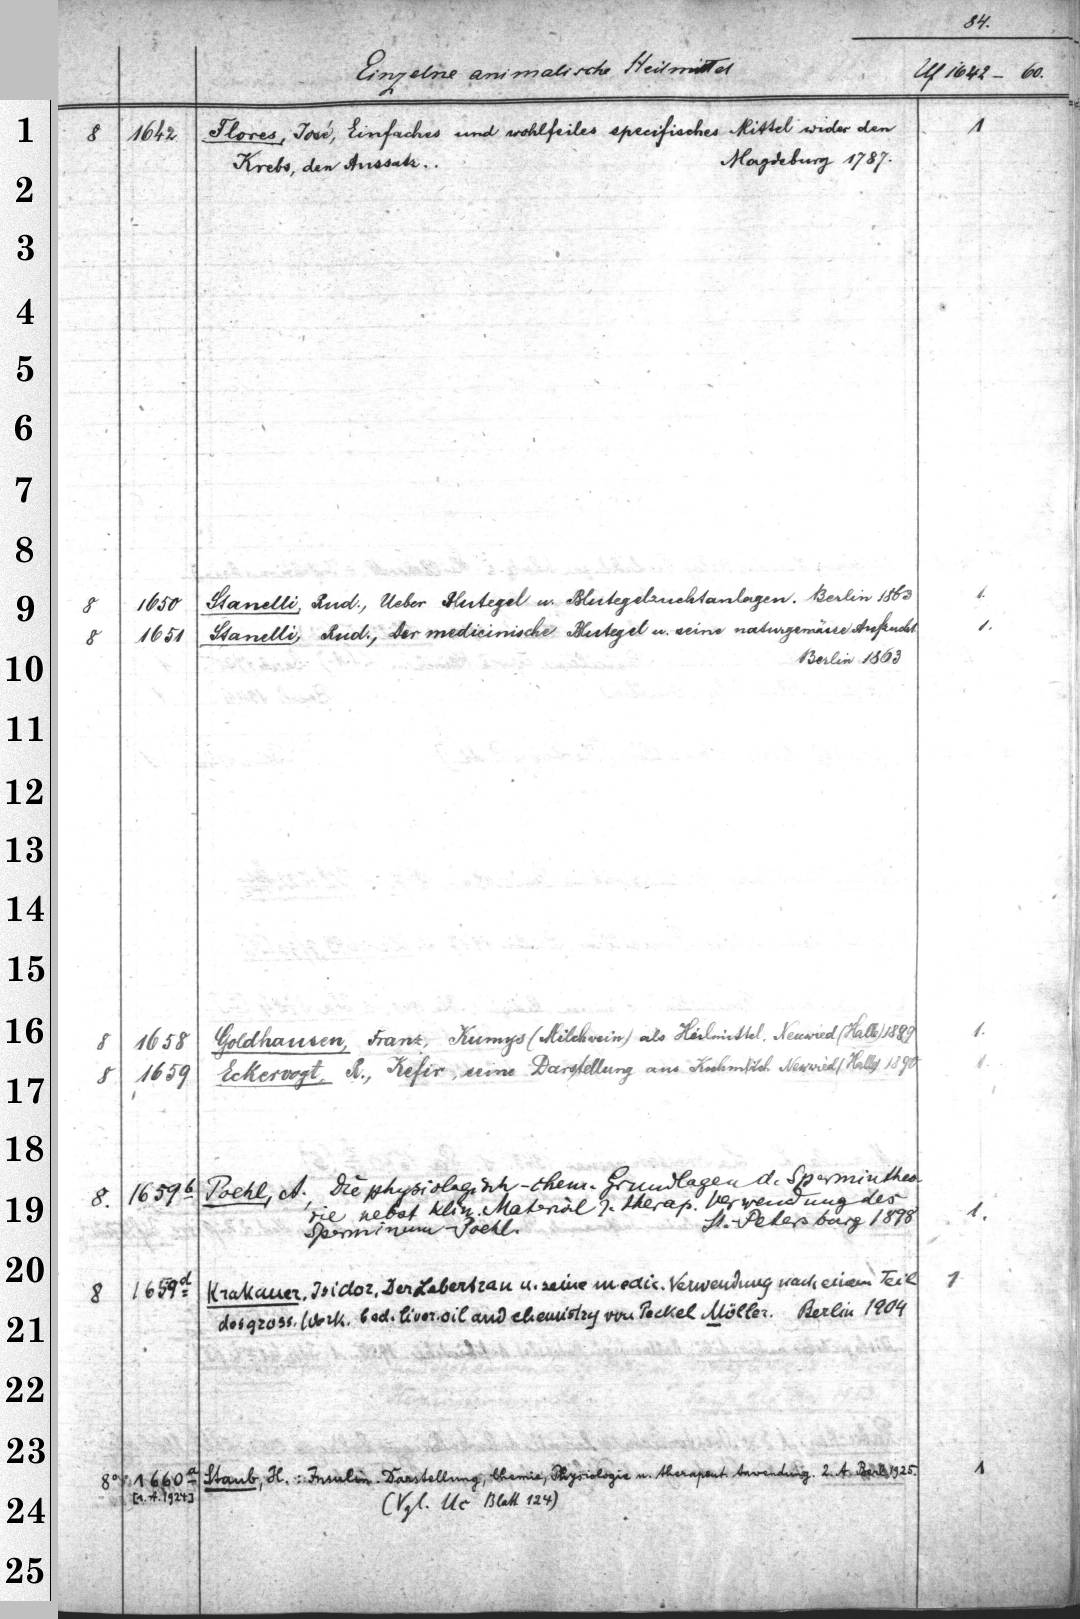 84.
Einzelne animalische Heilmittel Uf 1642 - 60.
1
2
3
4
5
6
7
8
9
10
11
12
13
14
15
16
17
18
19
20
21
22
23
24
25
8 1642 Flores, José, Einfaches und wohlfeiles specifisches Mittel wider den 1
Krebs, den Aussatz.. Magdeburg 1787.
8 1650 Stanelli, Rud., Ueber Blutegel u. Blutegelzuchtanlagen. Berlin 1863 1.
8 1651 Stanelli, Rud., Der medicinische Blutegel u. seine naturgemässe Aufzucht 1.
Berlin 1863
8 1658 Goldhausen, Franz, Kumys (Milchwein) als Heilmittel. Neuwied (Halle) 1889 1.
8 1659 Eckervogt, R., Kefir, seine Darstellung aus Kuhmilch Neuwied (Halle) 1890 1.
8. 1659b Poehl, A., Die physiologisch-chem. Grundlagen d. Spermintheo-
rie nebst klin. Material z. therap. Verwendung des 1.
Sperminum-Poehl. St.-Petersburg 1898
8 1659d Krakauer, Isidor, Der Lebertran u. seine medic. Verwendung nach einem Teil 1
des gross. Werk. Cod. liver. oil and chemistry von Peckel Möller. Berlin 1904
8° 1660a Staub, H.: Insulin. Darstellung, Chemie, Physiologie u. therapeut. Anwendung. 2. A. Berl. 1925. 1
[1. A. 1924] (Vgl. Uc Blatt 124)